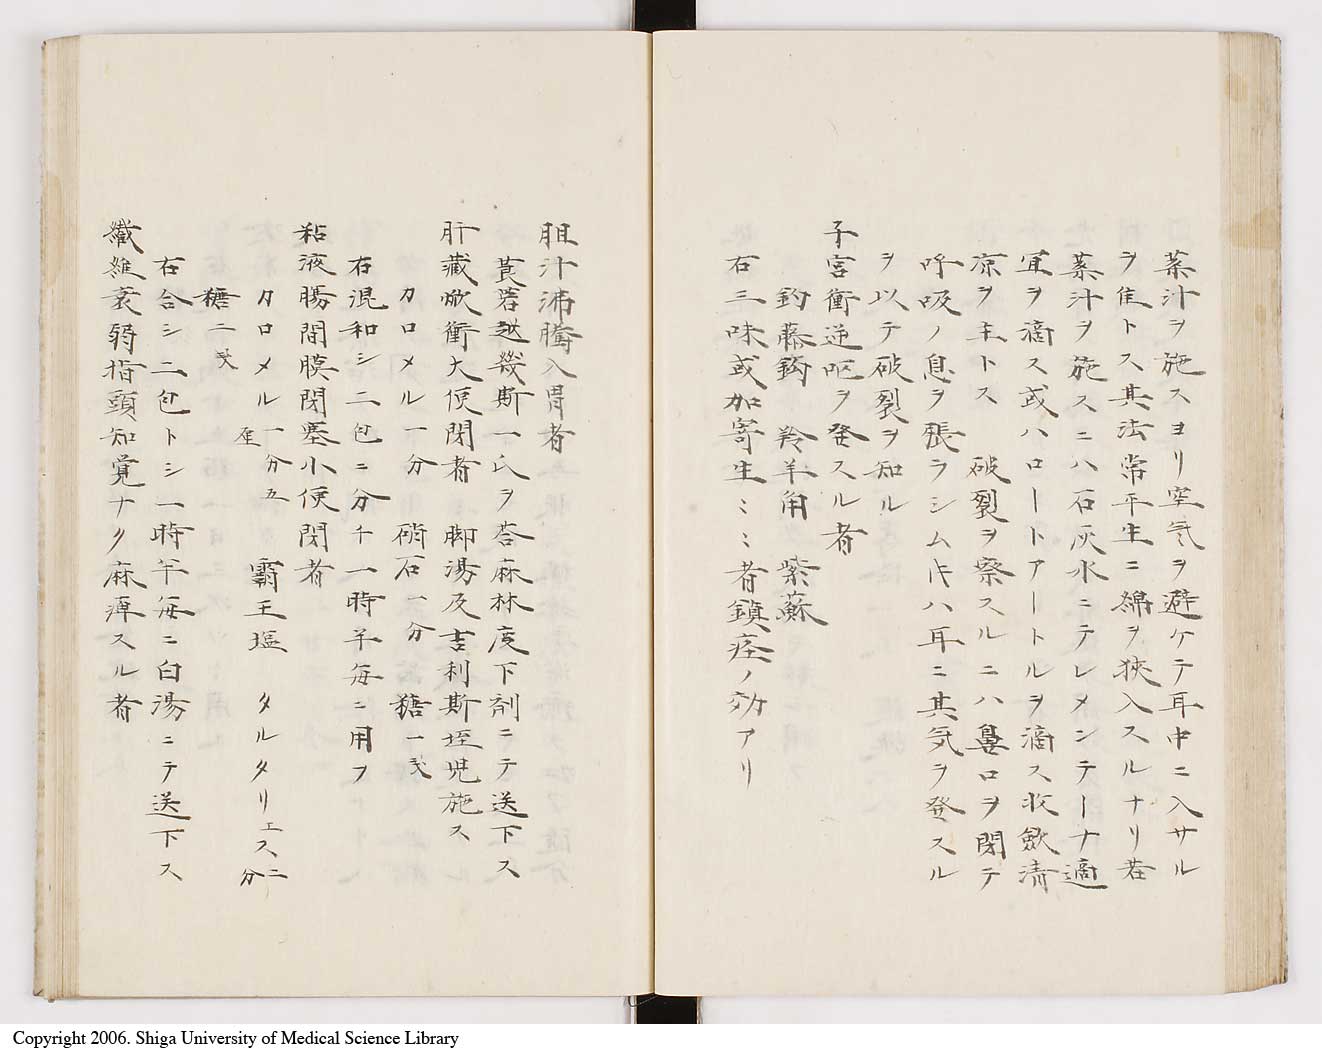 薬汁ヲ施スヨリ空気ヲ避ケテ耳中ニ入サル
ヲ隹トス其法常平生ニ綿ヲ狹入スルナリ若
薬汁ヲ施スニハ石灰水ニテレメンテーナ適
宜ヲ滴ス或ハロートアートルヲ滴ス収歛清
凉ヲ主トス 破裂ヲ察スルニハ鼻口ヲ閉テ
呼吸ノ息ヲ張ラシム片ハ耳ニ其気ヲ発スル
ヲ以テ破裂ヲ知ル
子宮衝逆呕ヲ発スル者
釣藤鈎 羚羊角 紫蘇
右三味或加寄生ミミ者鎮痙ノ効アリ
胆汁沸騰入胃者
莨菪越幾斯一氏ヲ荅麻林度下剤ニテ送下ス
肝藏焮衝大便閉者 脚湯及吉利斯垤児施ス
カロメル一分 硝石一分 糖一弐
右混和シ二包ニ分チ一時半毎ニ用フ
粘液腸間膜閉塞小便閉者
カロメル一分五厘 霸王塩 タルタリエス二分
糖二弐
右合シ二包トシ一時半毎ニ白湯ニテ送下ス
纖維衰弱指頭知覚ナク麻痺スル者
Copyright 2006. Shiga University of Medical Science Library